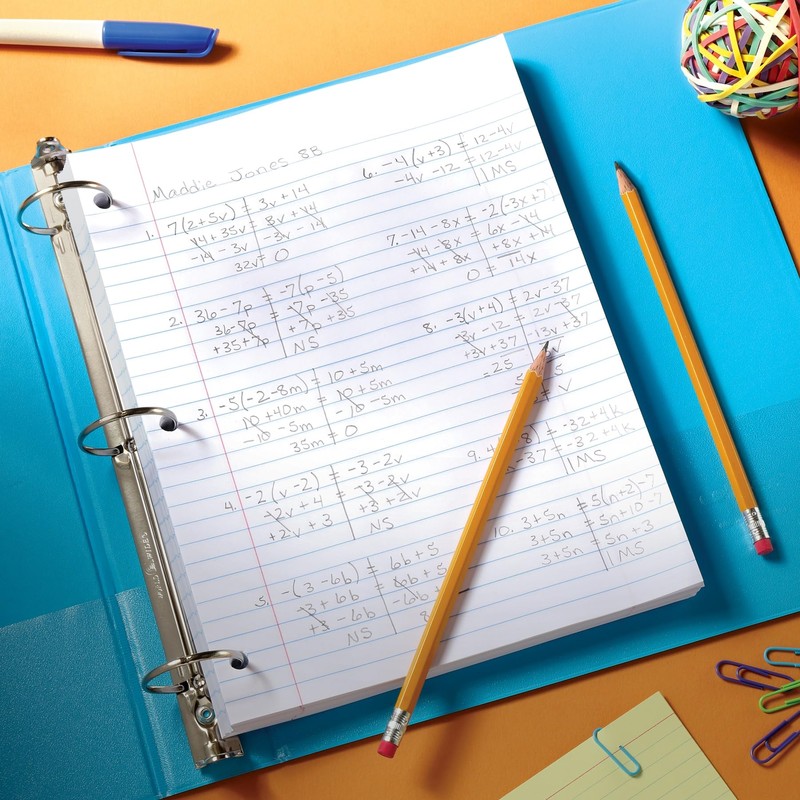 Maddie Jones 8B
1. 7(2+5v) = 3v+14
14+35v = 3v+14
-14-3v -3v-14
32v= 0
2. 36-7p = -7(p-5)
36-7p = -7p+35
+35+7p +7p+35
NS
3. -5(-2-8m) = 10+5m
10+40m = 10+5m
-10-5m -10-5m
35m = 0
4. -2(v-2) = -3-2v
-2v+4 = -3-2v
+2v+3 +3+2v
NS
5. -(3-6b) = 6b+5
-3+6b = 6b+5
+3-6b -6b+
NS 8
6. -4(v+3) = 12-4v
-4v-12 = 12-4v
IMS
7. -14-8x = -2(-3x+7
-14-8x = 6x-14
+14+8x +8x+14
0 = 14x
8. -3(v+4) = 2v-37
-3v-12 = 2v-37
+3v+37 -13v+37
=25
= v
9. 4 8) = -32+4k
-37 = -32+4k
IMS
10. 3+5n = 5(n+2)-7
3+5n = 5n+10-7
3+5n = 5n+3
IMS